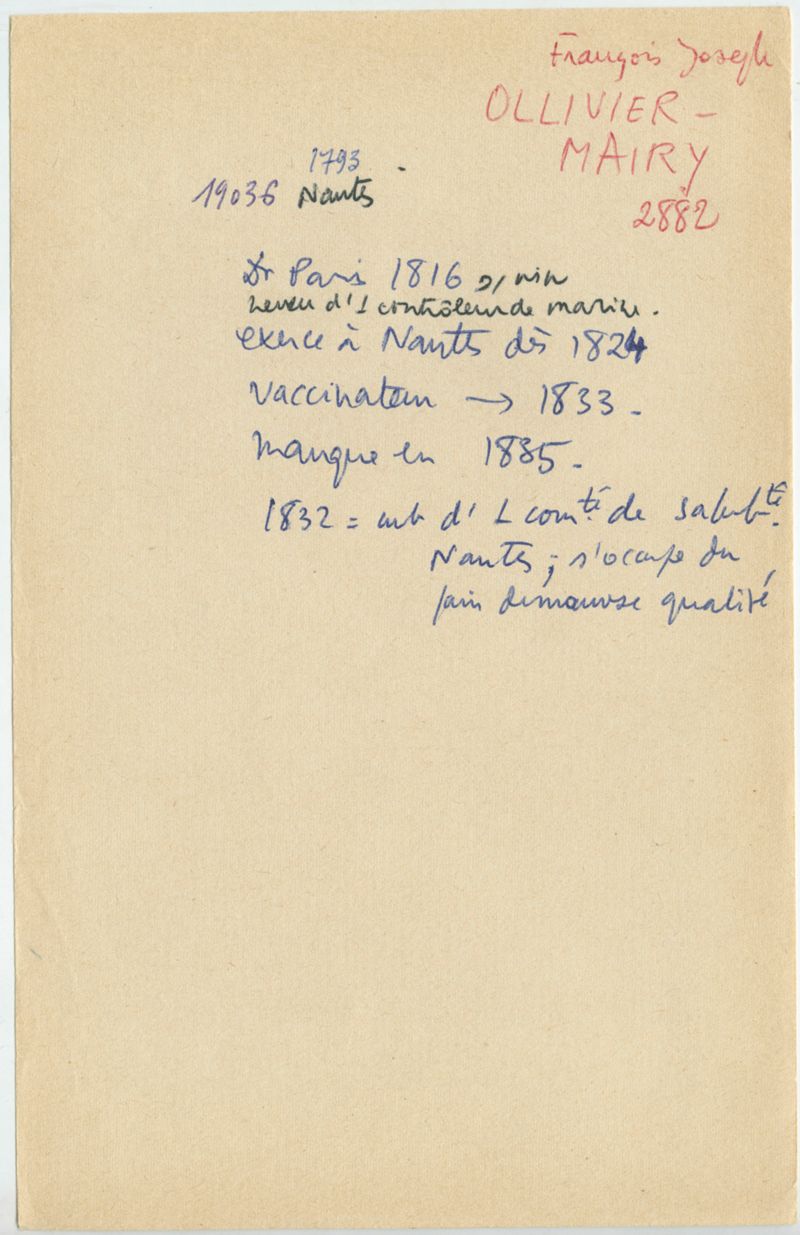 François Joseph
OLLIVIER-
MAIRY
2882
1793
19036 Nantes
Dr Paris 1816
neveu d'1 contrôleur de marine.
exerce à Nantes dès 1824
vaccinateur → 1833.
manque en 1835.
1832 = d'1 comté. de salubté.
Nantes; s'occupe du
pain de mauvse qualité